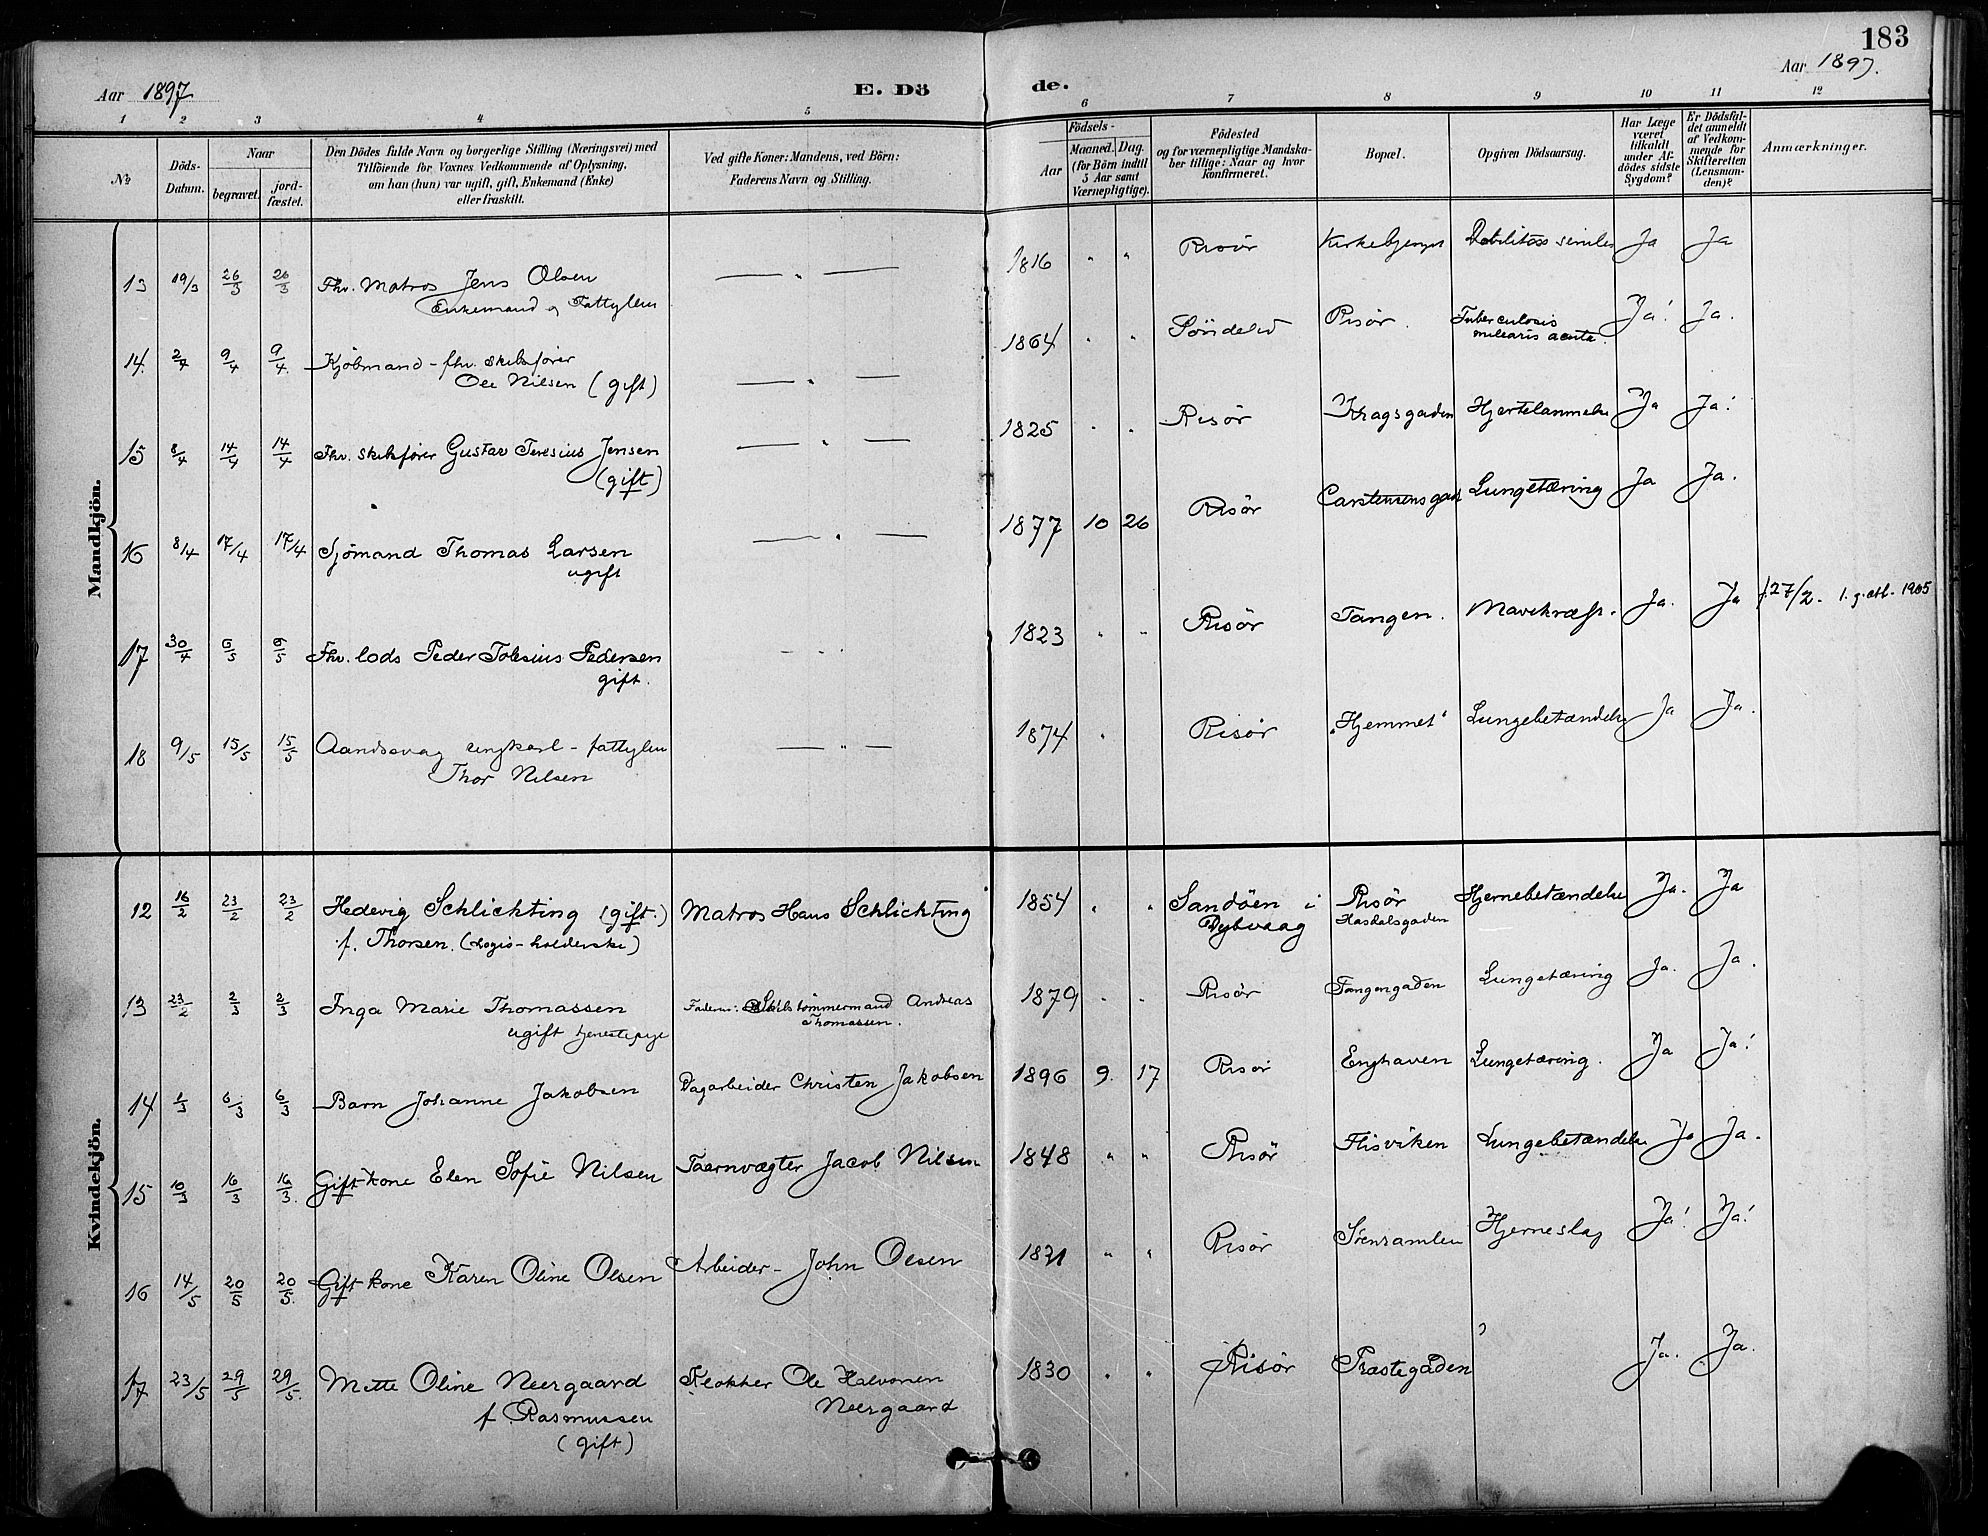 183
Aar 1897
E. Dö
de.
Aar 1897.
1 2 3 4 5 6 7 8 9 10 11 12
No
Döds-
Datum.
Naar
begravet.
jord-
fæstet.
Den Dödes fulde Navn og borgerlige Stilling (Næringsvei) med
Tilföiende for Voxnes Vedkommende af Oplysning,
om han (hun) var ugift, gift, Enkemand (Enke)
eller fraskilt.
Ved gifte Koner: Mandens, ved Börn:
Faderens Navn og Stilling.
Födsels-
Aar
Maaned. Dag.
(for Börn indtil
5 Aar samt
Værnepligtige).
Födested
og for værnepligtige Mandska-
ber tillige: Naar og hvor
konfirmeret.
Bopæl.
Opgiven Dödsaarsag.
Har Læge
været
tilkaldt
under Af-
dödes sidste
Sygdom?
Er Dödsfal-
det anmeldt
af Vedkom-
mende for
Skifteretten
(Lensman-
den)?
Anmærkninger.
Mandkjön.
13 19/3 26/3 26/3 Fhv. Matros Jens Olsen — " — 1816 " " Risör Debilitas senilis Ja Ja
Enkemand og Fattiglem
14. 2/4 9/4 9/4. Kjöbmand - fhv. skibsfører — " — 1864 " " Söndeled Risör. Tuberculosis Ja! Ja.
Ole Nilsen (gift) miliaris acuta.
15 8/4 14/4 14/4 Fhv. skibsfører Gustav Teresius Jensen — " — 1825 " " Risör Kragsgaden Hjertelammelse Ja Ja!
(gift)
16 8/4 17/4 17/4 Sjömand Thomas Larsen — " — 1877 10 26 Risör Carstensensgad Lungetæring Ja Ja.
ugift
17 30/4 6/5 6/5 Fhv. lods Peder Tobesius Pedersen - " - 1823 " " Risör Tangen. Mavekræft. Ja. Ja 27/2 - 1905
gift.
18 9/5 15/5 15/5 Aandssvag ungkarl - fattiglem — " — 1874 " Risör "Hjemmet" Lungebetændelse Ja Ja.
Thor Nilsen
Kvindekjön.
12 16/2 23/2 23/2 Hedevig Schlichting (gift.) Matros Hans Schlichting 1854 " " Sandöen i Risör Hjernebetændelse Ja. Ja
f. Thorsen. (Logis-holderske) Dybvaag Hasdalsgaden
13 23/2 2/3 2/3 Inga Marie Thomassen Faderen: Skibstömmermand Andreas 1879 " " Risör Tangengaden Lungetæring Ja. Ja.
ugift tjenestepige Thomassen.
14 1/3 6/3 6/3 Barn Johanne Jakobsen Dagarbeider Christen Jakobsen 1896 9. 17 Risör Enghaven Lungetæring. Ja Ja!
15 10/3 16/3 16/3. Gift kone Elen Sofie Nilsen Taarnvægter Jacob Nilsen 1848 " " Risör Flisviken Lungebetændelse Ja Ja.
16 14/5 20/5 20/5. Gift kone Karen Oline Olsen Arbeider - John Olsen " " Risör Hjerneslag Ja! Ja!
17 23/5 29/5 29/5. Mette Oline Neergaard Ole Halvorsen 1830 " " Risör Præstegaden ? Ja. Ja.
f. Rasmussen Neergaard
(gift)